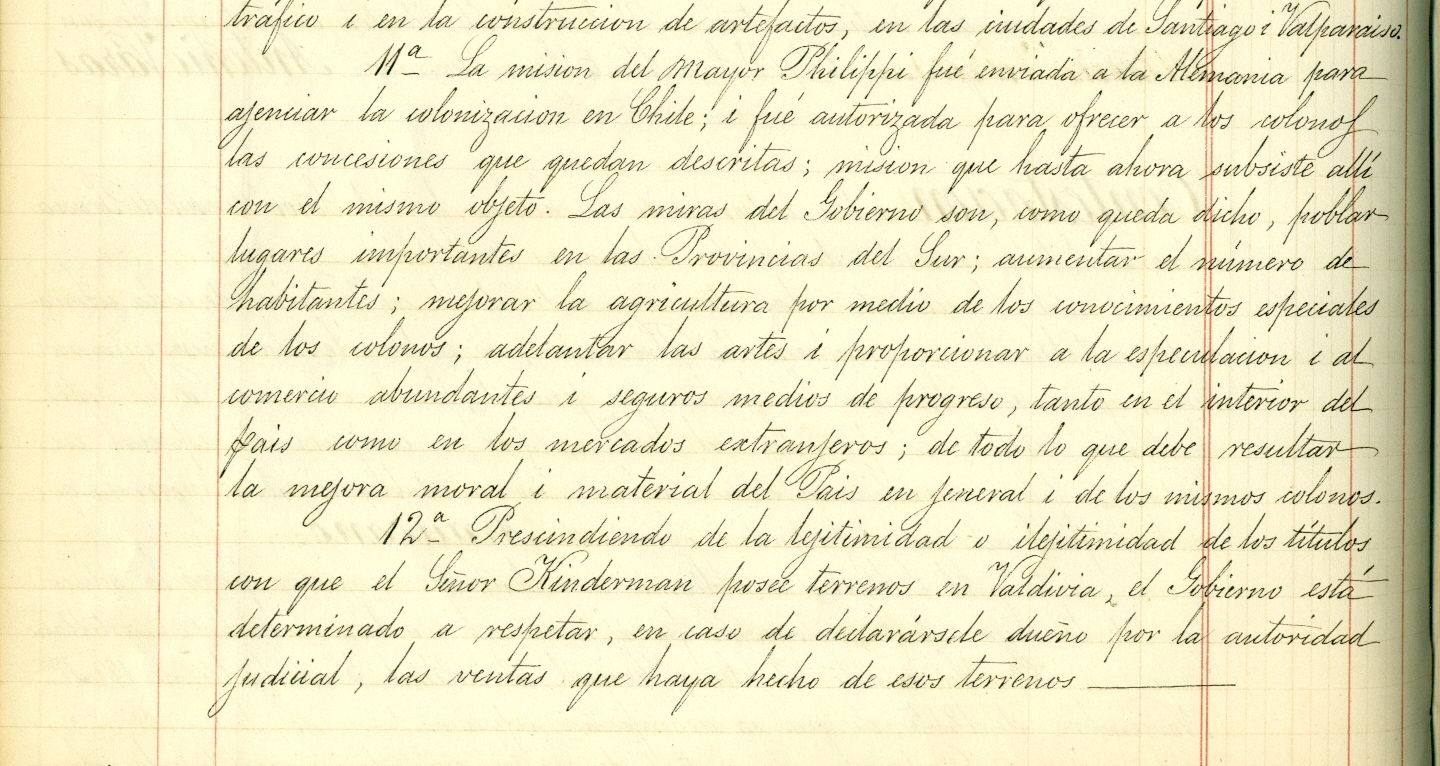 tráfico i en la construccion de artefactos, en las ciudades de Santiago i Valparaiso.
11ª La mision del Mayor Philippi fué enviada a la Alemania para
ajenciar la colonizacion en Chile; i fué autorizada para ofrecer a los colonos
las concesiones que quedan descritas; mision que hasta ahora subsiste allí
con el mismo objeto. Las miras del Gobierno son, como queda dicho, poblar
lugares importantes en las Provincias del Sur; aumentar el número de
habitantes; mejorar la agricultura por medio de los conocimientos especiales
de los colonos; adelantar las artes i proporcionar a la especulacion i al
comercio abundantes i seguros medios de progreso, tanto en el interior del
pais como en los mercados extranjeros; de todo lo que debe resultar
la mejora moral i material del Pais en jeneral i de los mismos colonos.
12ª Prescindiendo de la lejitimidad o ilejitimidad de los títulos
con que el Señor Kinderman posee terrenos en Valdivia, el Gobierno está
determinado a respetar, en caso de declarársele dueño por la autoridad
judicial, las ventas que haya hecho de esos terrenos